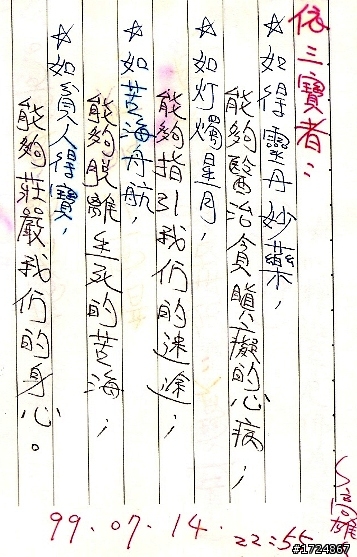 依三寶者：
☆如得靈丹妙藥，
能夠醫治貪瞋癡的心病；
☆如灯燭星月，
能夠指引我们的迷途；
☆如苦海舟航，
能夠脫離生死的苦海；
☆如貧人得寶，
能夠莊嚴我们的身心。
99.07.14. 22:55
高雄
#1724867